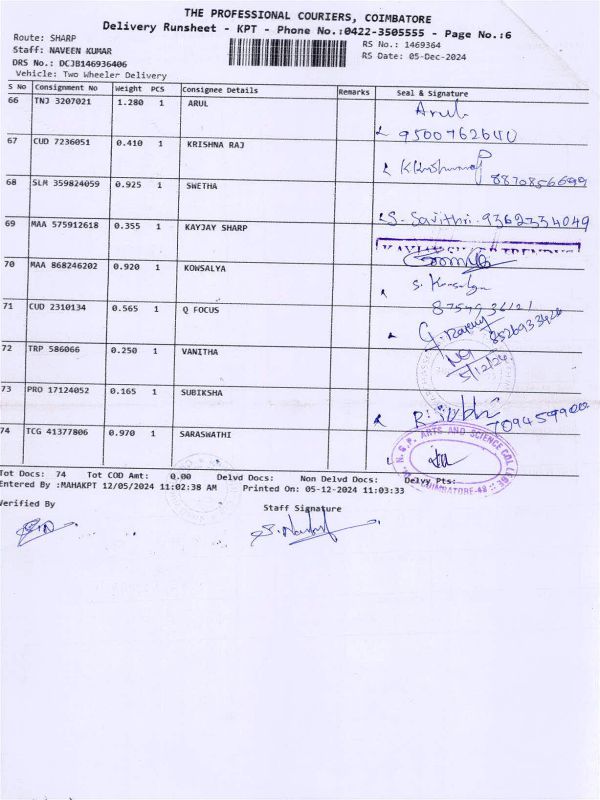 THE PROFESSIONAL COURIERS, COIMBATORE
Delivery Runsheet - KPT - Phone No.:0422-3505555 - Page No.:6
Route: SHARP
RS No.: 1469364
Staff: NAVEEN KUMAR
RS Date: 05-Dec-2024
DRS No.: DCJB146936406
Vehicle: Two Wheeler Delivery
S No Consignment No Weight PCS Consignee Details Remarks Seal & Signature
66 TNJ 3207021 1.280 1 ARUL Arul
9500762640
67 CUD 7236051 0.410 1 KRISHNA RAJ
8870856699
68 SLM 359824059 0.925 1 SWETHA
S. Savithri. 9362334049
69 MAA 575912618 0.355 1 KAYJAY SHARP
70 MAA 868246202 0.920 1 KOWSALYA S. Kowsalya
71 CUD 2310134 0.565 1 Q FOCUS
72 TRP 586066 0.250 1 VANITHA
5/12/24
73 PRO 17124052 0.165 1 SUBIKSHA
74 TCG 41377806 0.970 1 SARASWATHI
N.G.P. ARTS AND SCIENCE COLLEGE
COIMBATORE-48
Tot Docs: 74 Tot COD Amt: 0.00 Delvd Docs: Non Delvd Docs: Delvy Pts:
Entered By :MAHAKPT 12/05/2024 11:02:38 AM Printed On: 05-12-2024 11:03:33
Verified By
Staff Signature